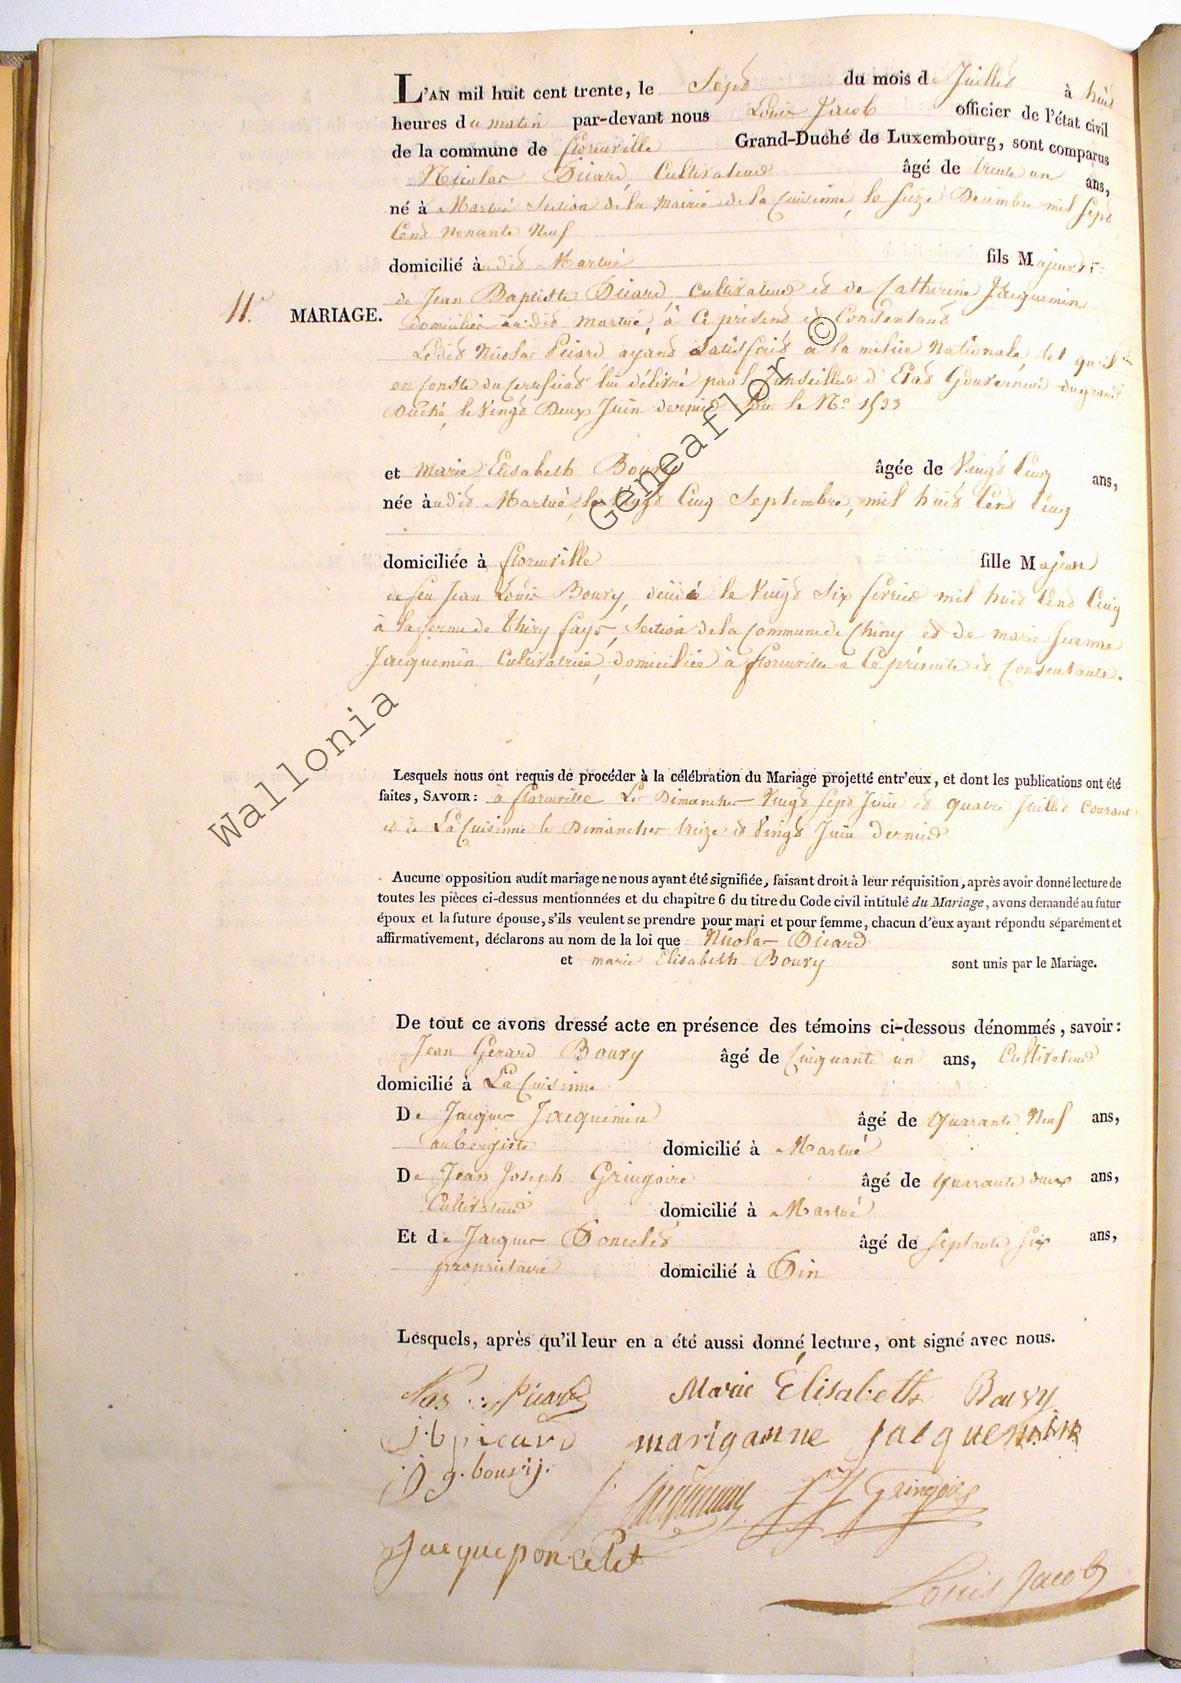 L'AN mil huit cent trente, le Sept du mois de Juillet à huit
heures du matin par-devant nous Louis Jacob officier de l'état civil
de la commune de florenville Grand-Duché de Luxembourg, sont comparus
Nicolas Picard, Cultivateur âgé de trente un ans,
né à Martué Section de la mairie de la Cuisinne, le Seize Decembre mil Sept
Cent Nonante Neuf
domicilié audit Martué fils Majeur
11. MARIAGE.
de Jean Baptiste Picard, Cultivateur et de Catherine Jacquemin
domiciliés audit Martué, à Ce présens et Consentans
Ledit Nicolas Picard ayant Satisfait à la milice Nationale, tel qu'il
en Conste du Certificat lui délivré par le Conseiller d'Etat Gouverneur du grand
Duché, le Vingt Deux Juin dernier Sous le No 1533
et Marie Elisabeth Boury âgée de Vingt Cinq ans,
née audit Martué, le Vingt Cinq Septembre, mil huit Cent Cinq
domiciliée à florenville fille Majeure
de feu Jean Louis Boury, décédé le Vingt Six fevrier mil huit Cent Cinq
à la ferme de Thiry fays, Section de la Commune de Chiny et de marie Jeanne
Jacquemin Cultivatrice, domiciliée à florenville a Ce présente et Consentante.
Lesquels nous ont requis de procéder à la célébration du Mariage projetté entr'eux, et dont les publications ont été
faites, SAVOIR: à florenville Les Dimanches Vingt Sept Juin et quatre Juillet Courant
et à La Cuisinne le Dimanches treize et Vingt Juin dernier
Aucune opposition audit mariage ne nous ayant été signifiée, faisant droit à leur réquisition, après avoir donné lecture de
toutes les pièces ci-dessus mentionnées et du chapitre 6 du titre du Code civil intitulé du Mariage, avons demandé au futur
époux et la future épouse, s'ils veulent se prendre pour mari et pour femme, chacun d'eux ayant répondu séparément et
affirmativement, déclarons au nom de la loi que Nicolas Picard
et marie Elisabeth Boury sont unis par le Mariage.
De tout ce avons dressé acte en présence des témoins ci-dessous dénommés, savoir:
Jean Gerard Boury âgé de Cinquante un ans, Cultivateur
domicilié à La Cuisinne
De Jacques Jacquemin âgé de quarante Neuf ans,
aubergiste domicilié à Martué
De Jean Joseph Gringoire âgé de quarante deux ans,
Cultivateur domicilié à Martué
Et de Jacques Poncelet âgé de Septante Six ans,
proprietaire domicilié à Pin
Lesquels, après qu'il leur en a été aussi donné lecture, ont signé avec nous.
Nas Picard Marie Élisabeth Boury
jb picard mariganne jacquemin
j g. boury. Jacquemin JJ Gringoire
Jacque poncelet
Louis Jacob
Wallonia Geneaflor ©